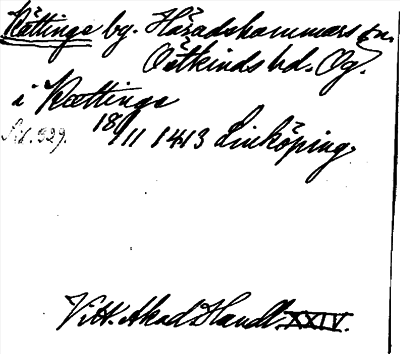 Kättinge bg. Häradshammars sn.
Östkinds hd. Ög.
i Kættinge
S.d. 929. 18/11 1413 Linköping.
Vitt. Akad Handl. XXIV.